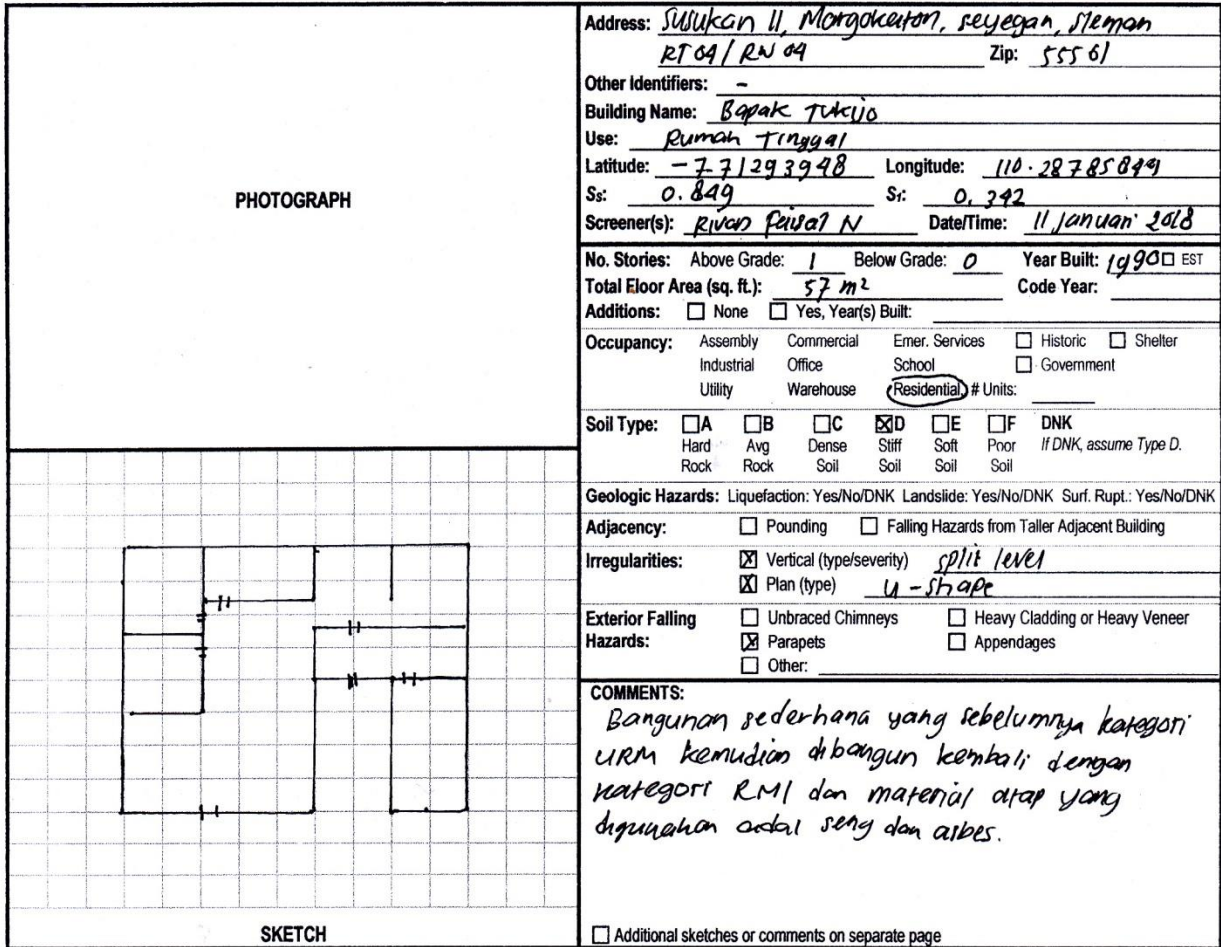 PHOTOGRAPH
SKETCH
Address: Susukan II, Margokaton, seyegan, Sleman
RT 04 / RW 04 Zip: 55561
Other Identifiers: -
Building Name: Bapak Tukijo
Use: Rumah Tinggal
Latitude: -7.71293948 Longitude: 110.28785849
Ss: 0.849 S1: 0.342
Screener(s): Rivan Faisal N Date/Time: 11 Januari 2018
No. Stories: Above Grade: 1 Below Grade: 0 Year Built: 1990 EST
Total Floor Area (sq. ft.): 57 m² Code Year:
Additions: None Yes, Year(s) Built:
Occupancy: Assembly Commercial Emer. Services Historic Shelter
Industrial Office School Government
Utility Warehouse Residential, # Units:
Soil Type: A B C D E F DNK
Hard Avg Dense Stiff Soft Poor If DNK, assume Type D.
Rock Rock Soil Soil Soil Soil
Geologic Hazards: Liquefaction: Yes/No/DNK Landslide: Yes/No/DNK Surf. Rupt.: Yes/No/DNK
Adjacency: Pounding Falling Hazards from Taller Adjacent Building
Irregularities: Vertical (type/severity) split level
Plan (type) U-shape
Exterior Falling Unbraced Chimneys Heavy Cladding or Heavy Veneer
Hazards: Parapets Appendages
Other:
COMMENTS:
Bangunan sederhana yang sebelumnya kategori
URM kemudian dibangun kembali dengan
kategori RM1 dan material atap yang
digunakan adal seng dan asbes.
Additional sketches or comments on separate page